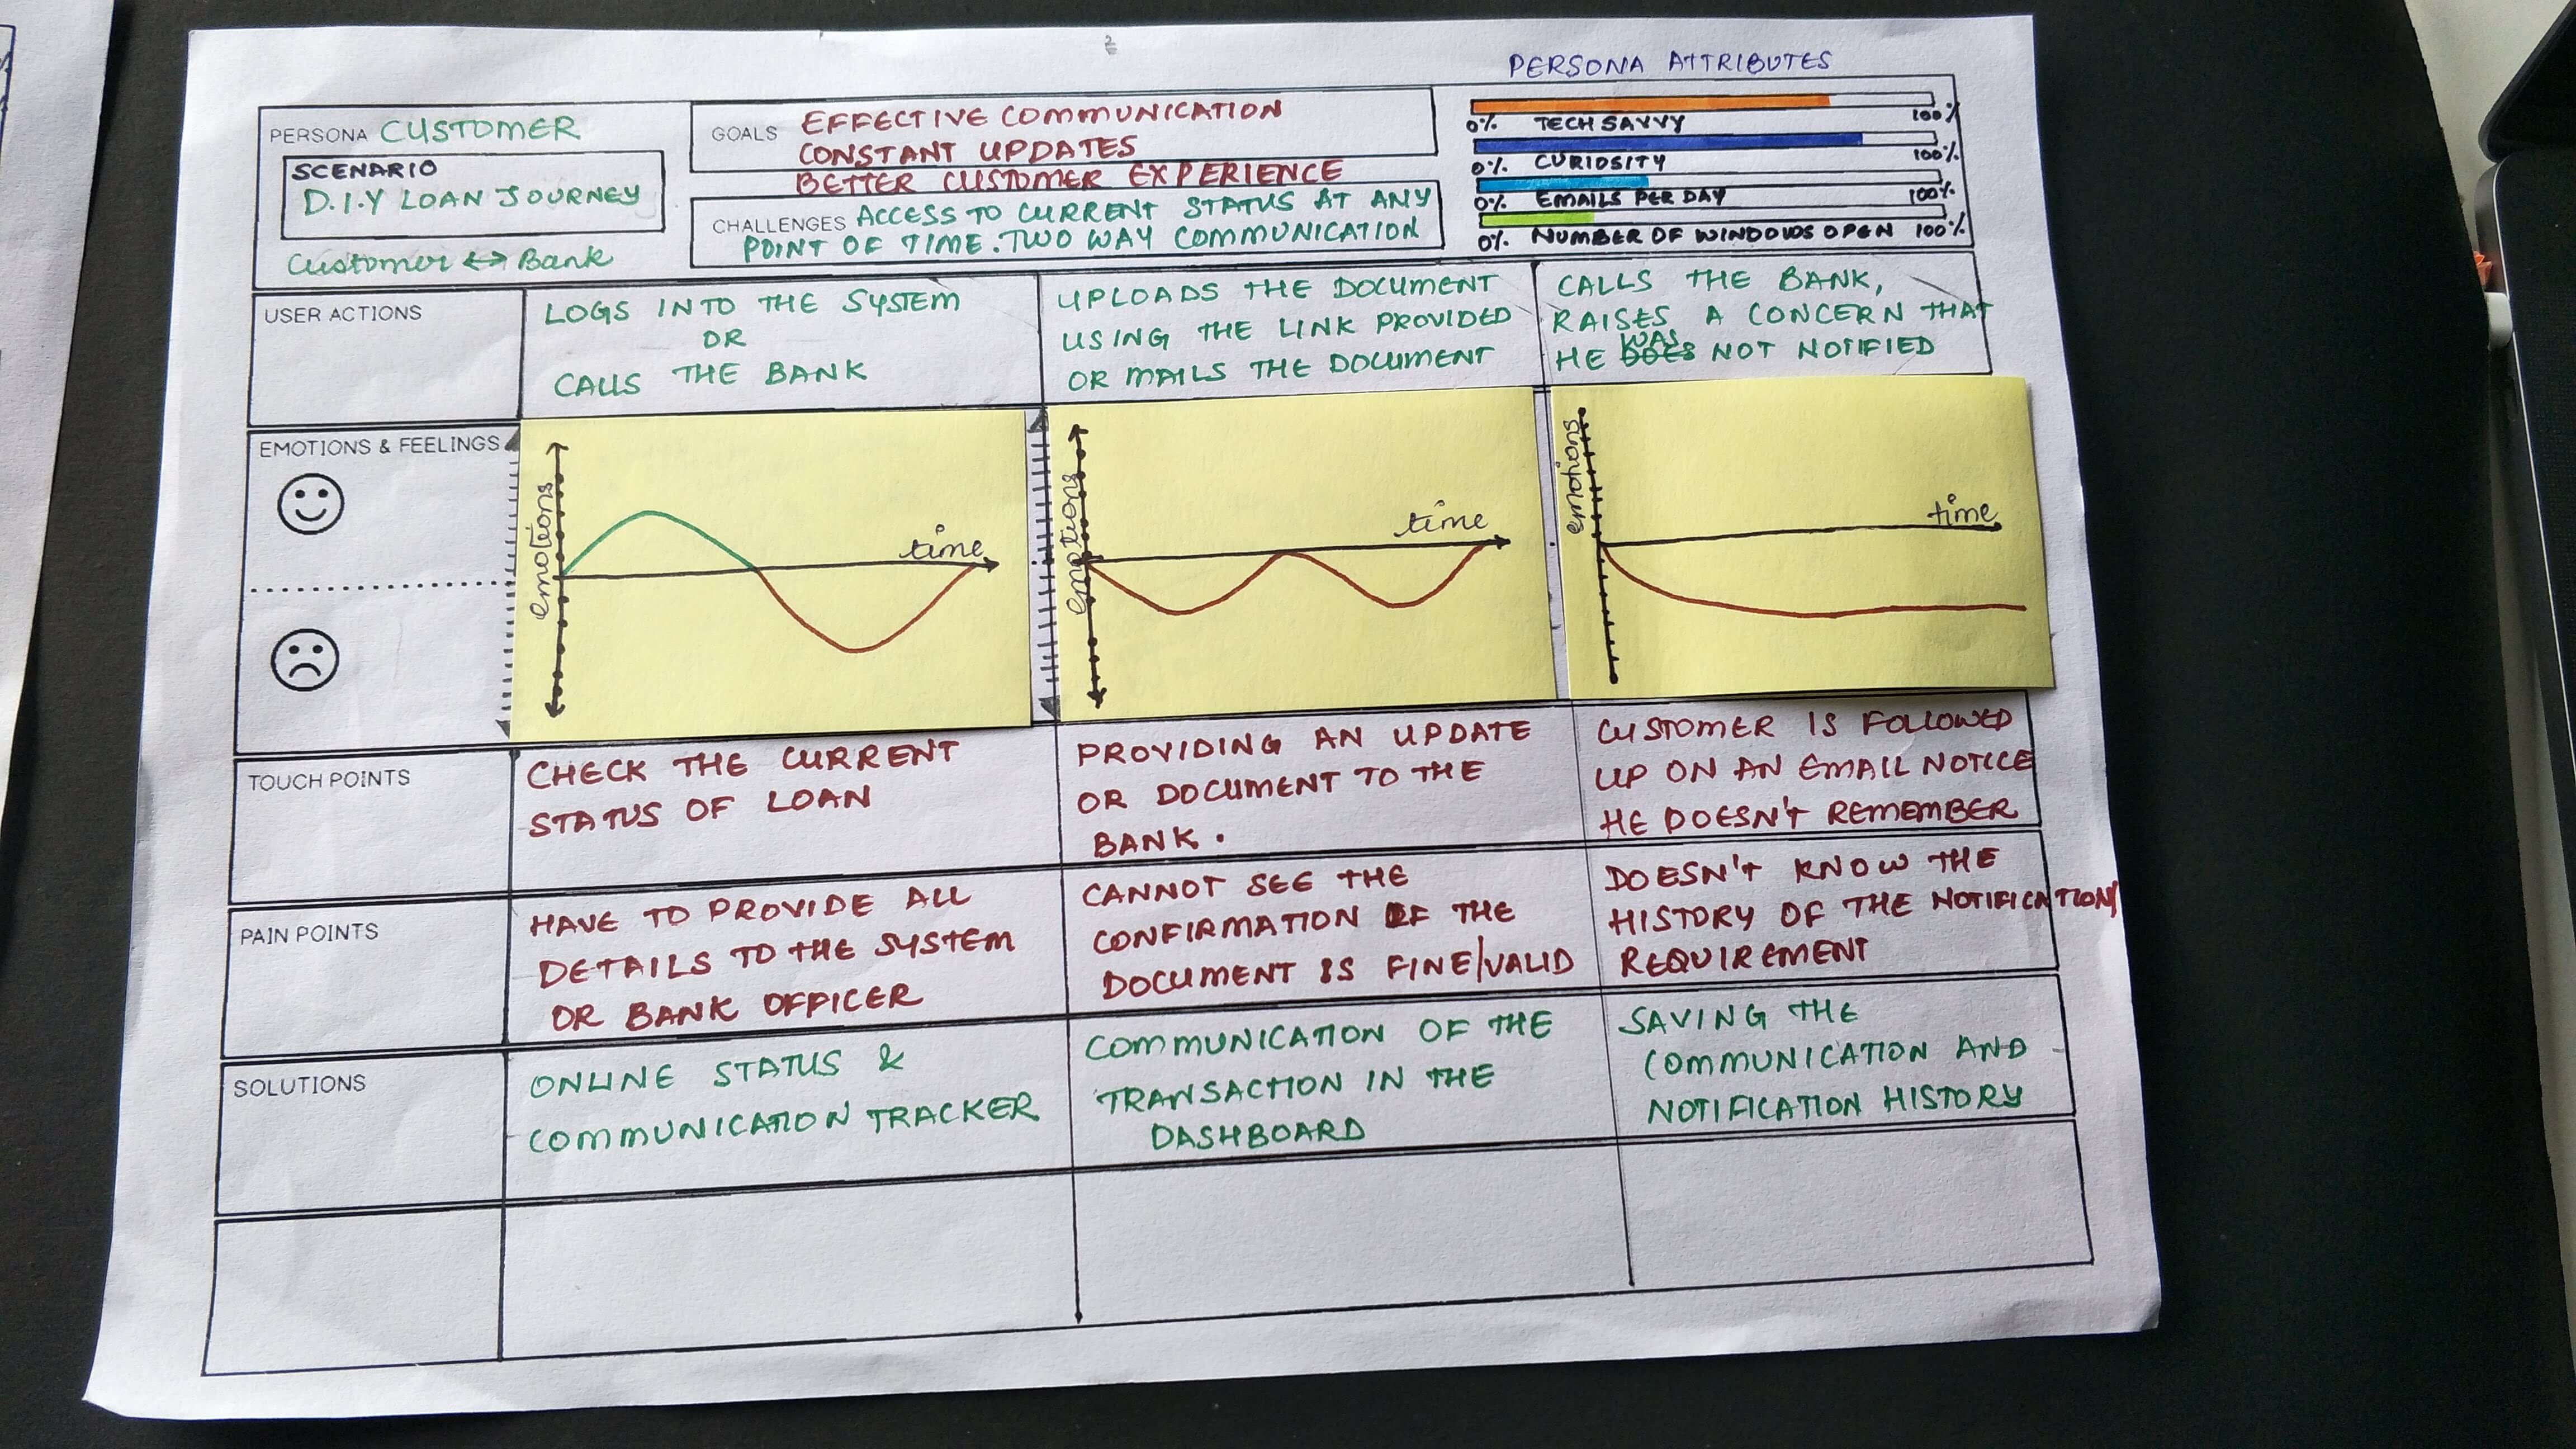 PERSONA ATTRIBUTES
PERSONA CUSTOMER
SCENARIO
D.I.Y LOAN JOURNEY
Customer ↔ Bank
GOALS EFFECTIVE COMMUNICATION
CONSTANT UPDATES
BETTER CUSTOMER EXPERIENCE
CHALLENGES ACCESS TO CURRENT STATUS AT ANY
POINT OF TIME. TWO WAY COMMUNICATION
0% TECH SAVVY 100%
0% CURIOSITY 100%
0% EMAILS PER DAY 100%
0% NUMBER OF WINDOWS OPEN 100%
USER ACTIONS
LOGS INTO THE SYSTEM
OR
CALLS THE BANK
UPLOADS THE DOCUMENT
USING THE LINK PROVIDED
OR MAILS THE DOCUMENT
CALLS THE BANK,
RAISES A CONCERN THAT
HE WAS NOT NOTIFIED
EMOTIONS & FEELINGS
emotions
time
emotions
time
emotions
time
TOUCH POINTS
CHECK THE CURRENT
STATUS OF LOAN
PROVIDING AN UPDATE
OR DOCUMENT TO THE
BANK.
CUSTOMER IS FOLLOWED
UP ON AN EMAIL NOTICE
HE DOESN'T REMEMBER
PAIN POINTS
HAVE TO PROVIDE ALL
DETAILS TO THE SYSTEM
OR BANK OFFICER
CANNOT SEE THE
CONFIRMATION IF THE
DOCUMENT IS FINE/VALID
DOESN'T KNOW THE
HISTORY OF THE NOTIFICATION/
REQUIREMENT
SOLUTIONS
ONLINE STATUS &
COMMUNICATION TRACKER
COMMUNICATION OF THE
TRANSACTION IN THE
DASHBOARD
SAVING THE
COMMUNICATION AND
NOTIFICATION HISTORY